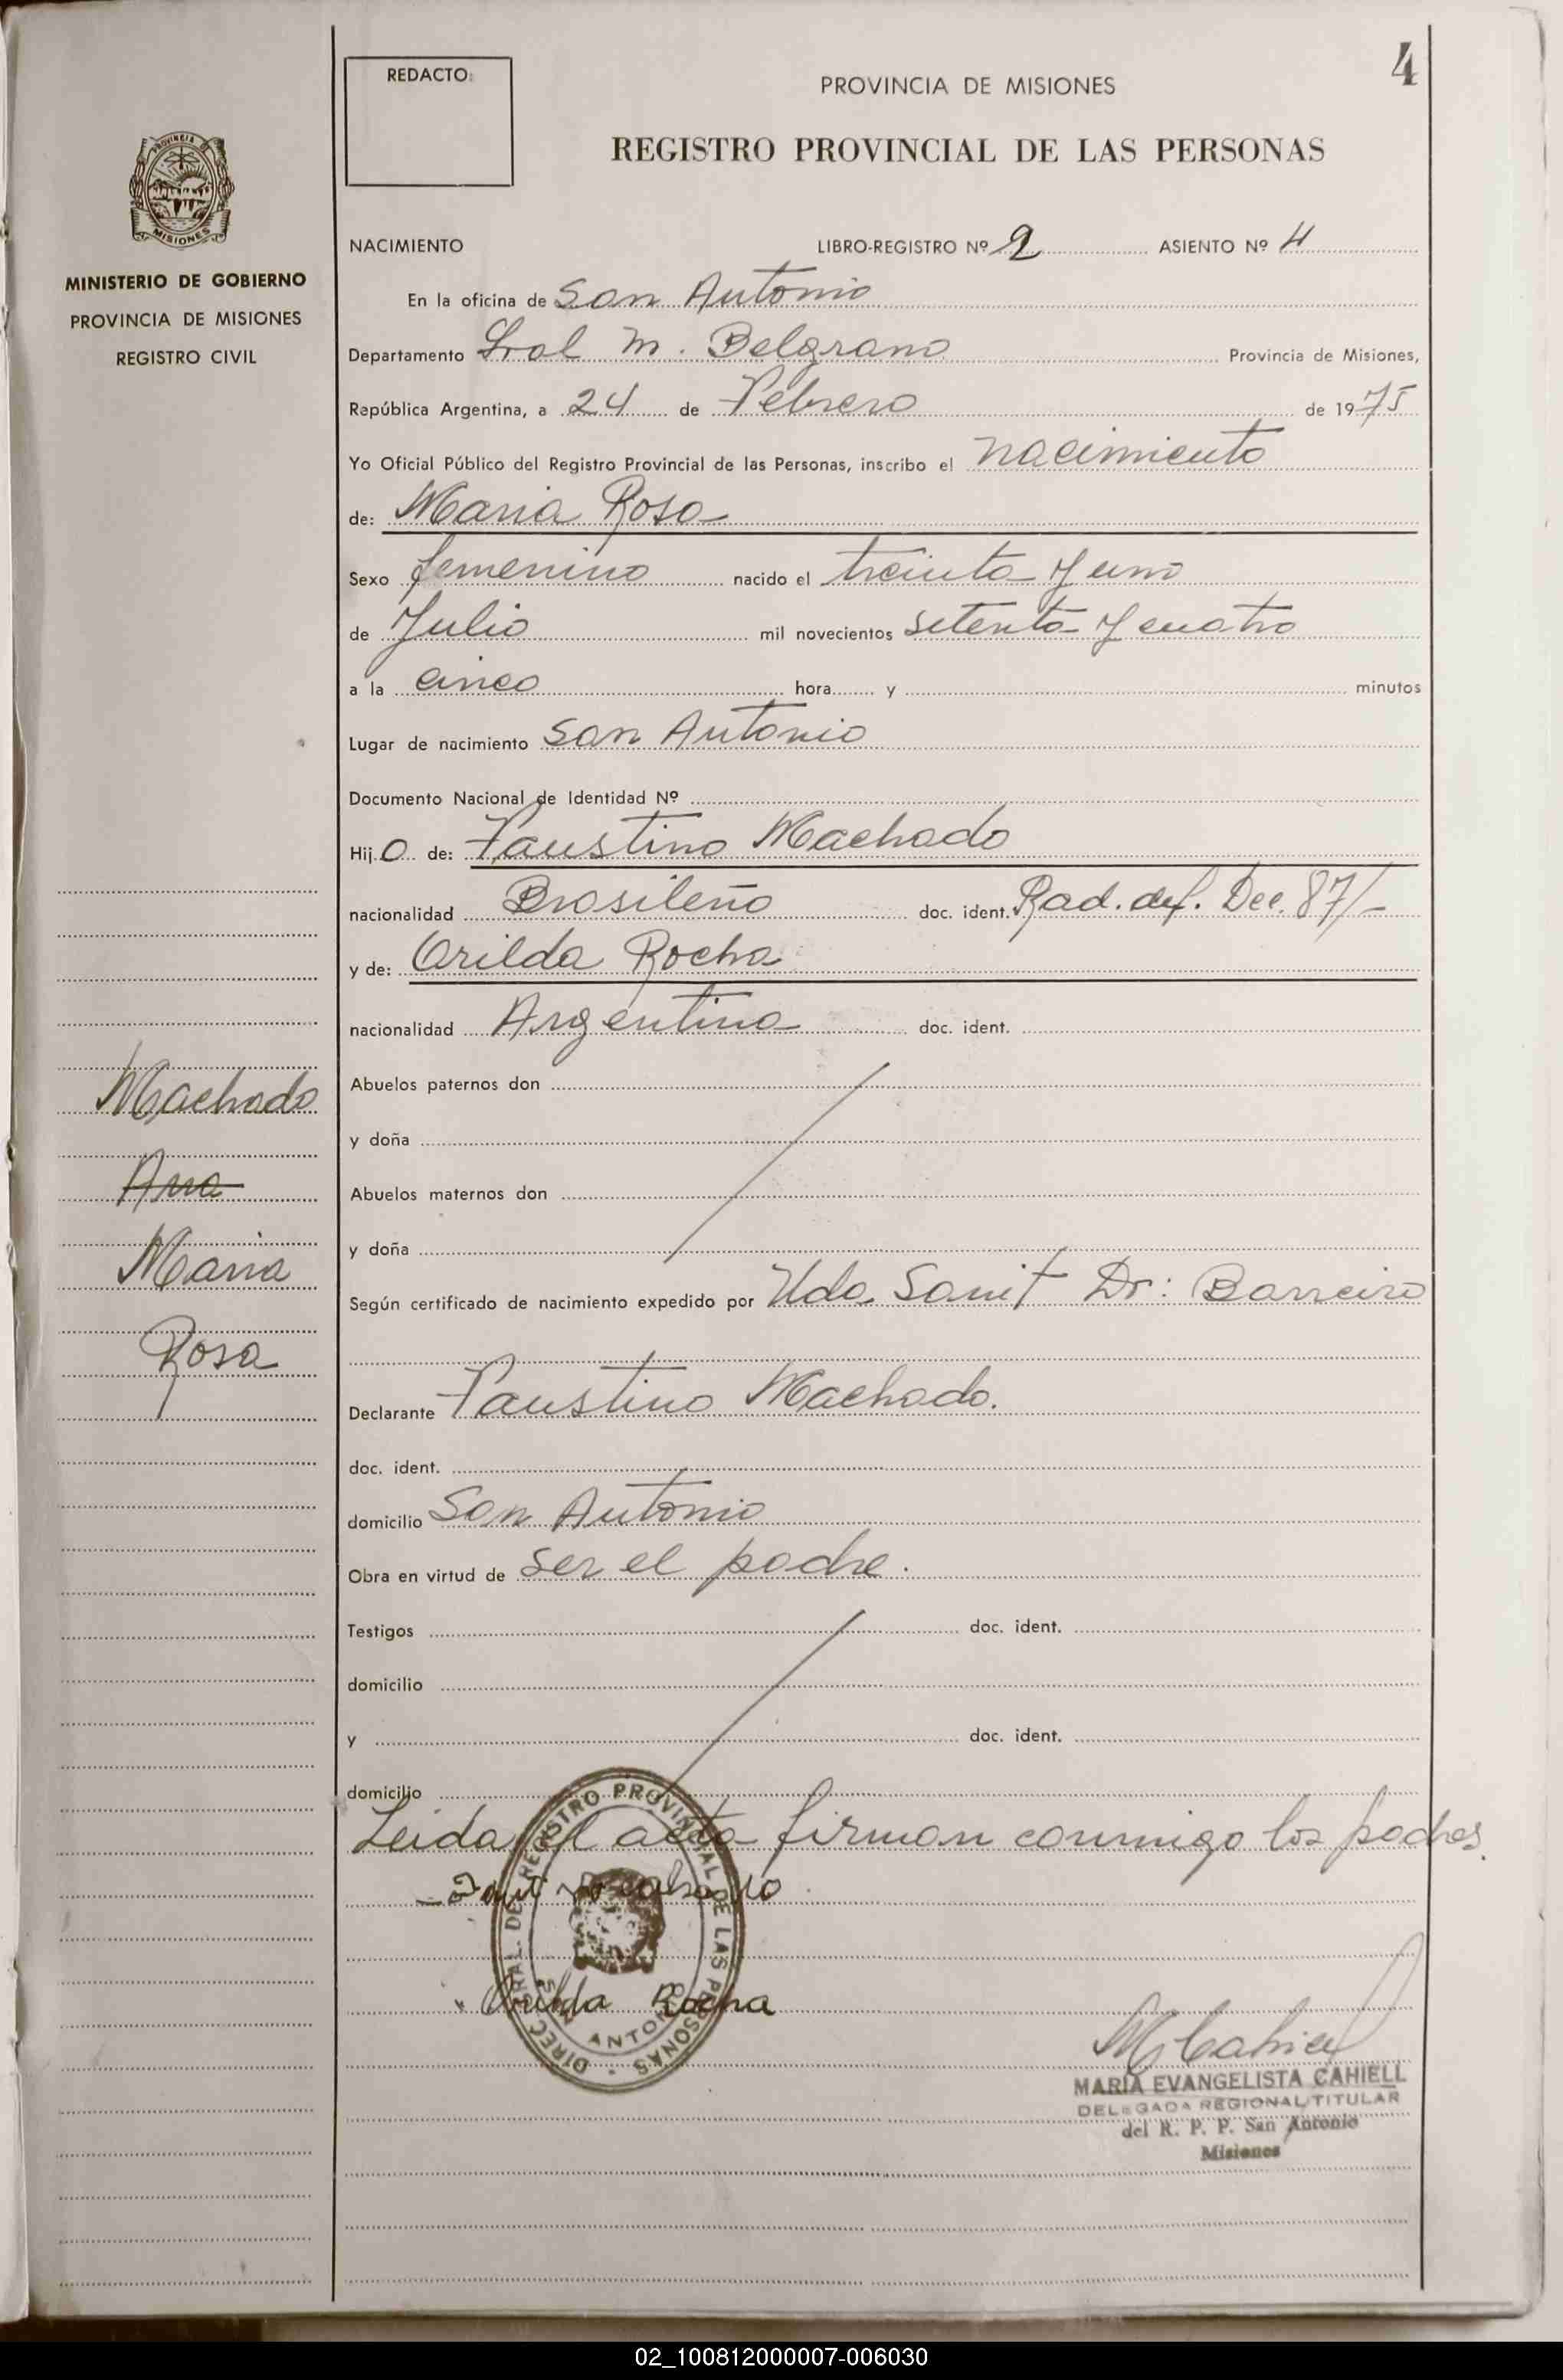 4
REDACTO:
PROVINCIA DE MISIONES
REGISTRO PROVINCIAL DE LAS PERSONAS
PROVINCIA
MISIONES
MINISTERIO DE GOBIERNO
PROVINCIA DE MISIONES
REGISTRO CIVIL
NACIMIENTO LIBRO-REGISTRO Nº 2 ASIENTO Nº 4
En la oficina de San Antonio
Departamento Gral M. Belgrano Provincia de Misiones,
República Argentina, a 24 de Febrero de 1975
Yo Oficial Público del Registro Provincial de las Personas, inscribo el nacimiento
de: Maria Rosa
Sexo femenino nacido el treinta y uno
de Julio mil novecientos setenta y cuatro
a la cinco hora y minutos
Lugar de nacimiento San Antonio
Documento Nacional de Identidad Nº
Hij o de: Faustino Machado
nacionalidad Brasileño doc. ident. Rad. def. Dec. 87/-
y de: Orilda Rocha
nacionalidad Argentina doc. ident.
Abuelos paternos don
y doña
Abuelos maternos don
y doña
Según certificado de nacimiento expedido por Uda. Sanit Dr: Barreiro
Declarante Faustino Machado.
doc. ident.
domicilio San Antonio
Obra en virtud de ser el padre.
Testigos doc. ident.
domicilio
y doc. ident.
domicilio
Leida el acta firman conmigo los padres.
Machado
Ana
Maria
Rosa
Orilda Rocha
DIREC. GRAL. DE REGISTRO PROVINCIAL DE LAS PERSONAS
SAN ANTONIO
MCahiell
MARIA EVANGELISTA CAHIELL
DELEGADA REGIONAL TITULAR
del R. P. P. San Antonio
Misiones
02_100812000007-006030